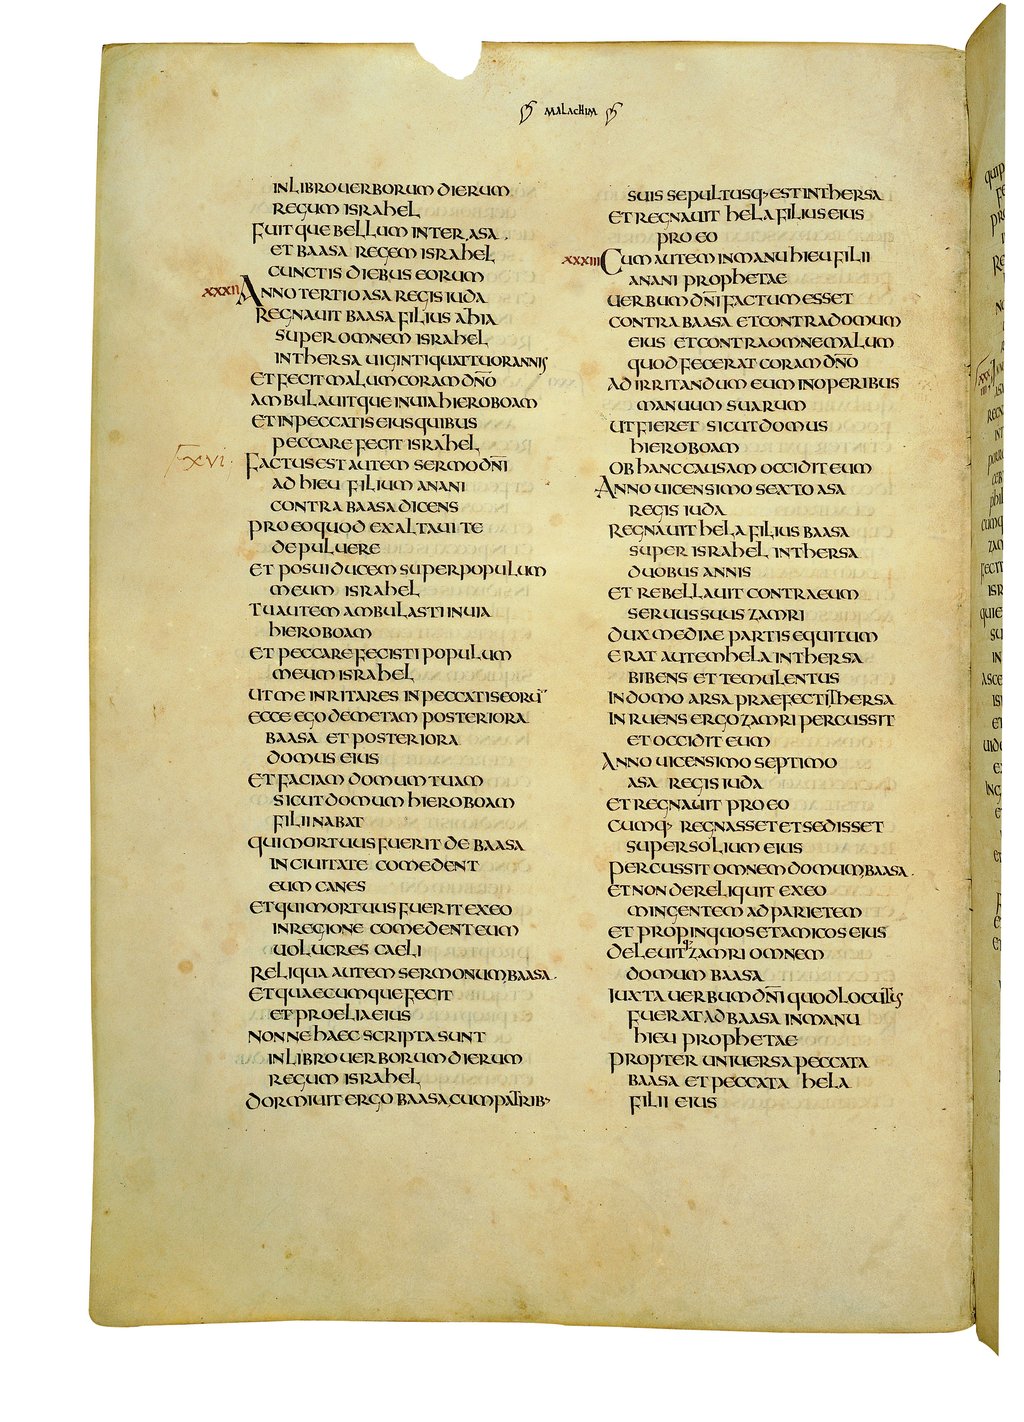 MALACHIM
IN LIBRO UERBORUM DIERUM
REGUM ISRAHEL
FUITQUE BELLUM INTER ASA
ET BAASA REGEM ISRAHEL
CUNCTIS DIEBUS EORUM
XXXII ANNO TERTIO ASA REGIS IUDA
REGNAUIT BAASA FILIUS AHIA
SUPER OMNEM ISRAHEL
IN THERSA UIGINTI QUATTUOR ANNIS
ET FECIT MALUM CORAM DÑO
AMBULAUITQUE IN UIA HIEROBOAM
ET IN PECCATIS EIUS QUIBUS
PECCARE FECIT ISRAHEL
XVI FACTUS EST AUTEM SERMO DÑI
AD HIEU FILIUM ANANI
CONTRA BAASA DICENS
PRO EO QUOD EXALTAUI TE
DE PULUERE
ET POSUI DUCEM SUPER POPULUM
MEUM ISRAHEL
TU AUTEM AMBULASTI IN UIA
HIEROBOAM
ET PECCARE FECISTI POPULUM
MEUM ISRAHEL
UT ME INRITARES IN PECCATIS EORŪ
ECCE EGO DEMETAM POSTERIORA
BAASA ET POSTERIORA
DOMUS EIUS
ET FACIAM DOMUM TUAM
SICUT DOMUM HIEROBOAM
FILII NABAT
QUI MORTUUS FUERIT DE BAASA
IN CIUITATE COMEDENT
EUM CANES
ET QUI MORTUUS FUERIT EX EO
IN REGIONE COMEDENT EUM
UOLUCRES CAELI
RELIQUA AUTEM SERMONUM BAASA
ET QUAECUMQUE FECIT
ET PROELIA EIUS
NONNE HAEC SCRIPTA SUNT
IN LIBRO UERBORUM DIERUM
REGUM ISRAHEL
DORMIUIT ERGO BAASA CUM PATRIB·
SUIS SEPULTUSQ· EST IN THERSA
ET REGNAUIT HELA FILIUS EIUS
PRO EO
XXXIII CUM AUTEM IN MANU HIEU FILII
ANANI PROPHETAE
UERBUM DÑI FACTUM ESSET
CONTRA BAASA ET CONTRA DOMUM
EIUS ET CONTRA OMNE MALUM
QUOD FECERAT CORAM DÑO
AD IRRITANDUM EUM IN OPERIBUS
MANUUM SUARUM
UT FIERET SICUT DOMUS
HIEROBOAM
OB HANC CAUSAM OCCIDIT EUM
ANNO UICENSIMO SEXTO ASA
REGIS IUDA
REGNAUIT HELA FILIUS BAASA
SUPER ISRAHEL IN THERSA
DUOBUS ANNIS
ET REBELLAUIT CONTRA EUM
SERUUS SUUS ZAMRI
DUX MEDIAE PARTIS EQUITUM
ERAT AUTEM HELA IN THERSA
BIBENS ET TEMULENTUS
IN DOMO ARSA PRAEFECTI THERSA
INRUENS ERGO ZAMRI PERCUSSIT
ET OCCIDIT EUM
ANNO UICENSIMO SEPTIMO
ASA REGIS IUDA
ET REGNAUIT PRO EO
CUMQ· REGNASSET ET SEDISSET
SUPER SOLIUM EIUS
PERCUSSIT OMNEM DOMUM BAASA
ET NON DERELIQUIT EX EO
MINGENTEM AD PARIETEM
ET PROPINQUOS ET AMICOS EIUS
DELEUIT ZAMRI OMNEM
DOMUM BAASA
IUXTA UERBUM DÑI QUOD LOCUTUS
FUERAT AD BAASA IN MANU
HIEU PROPHETAE
PROPTER UNIUERSA PECCATA
BAASA ET PECCATA HELA
FILII EIUS